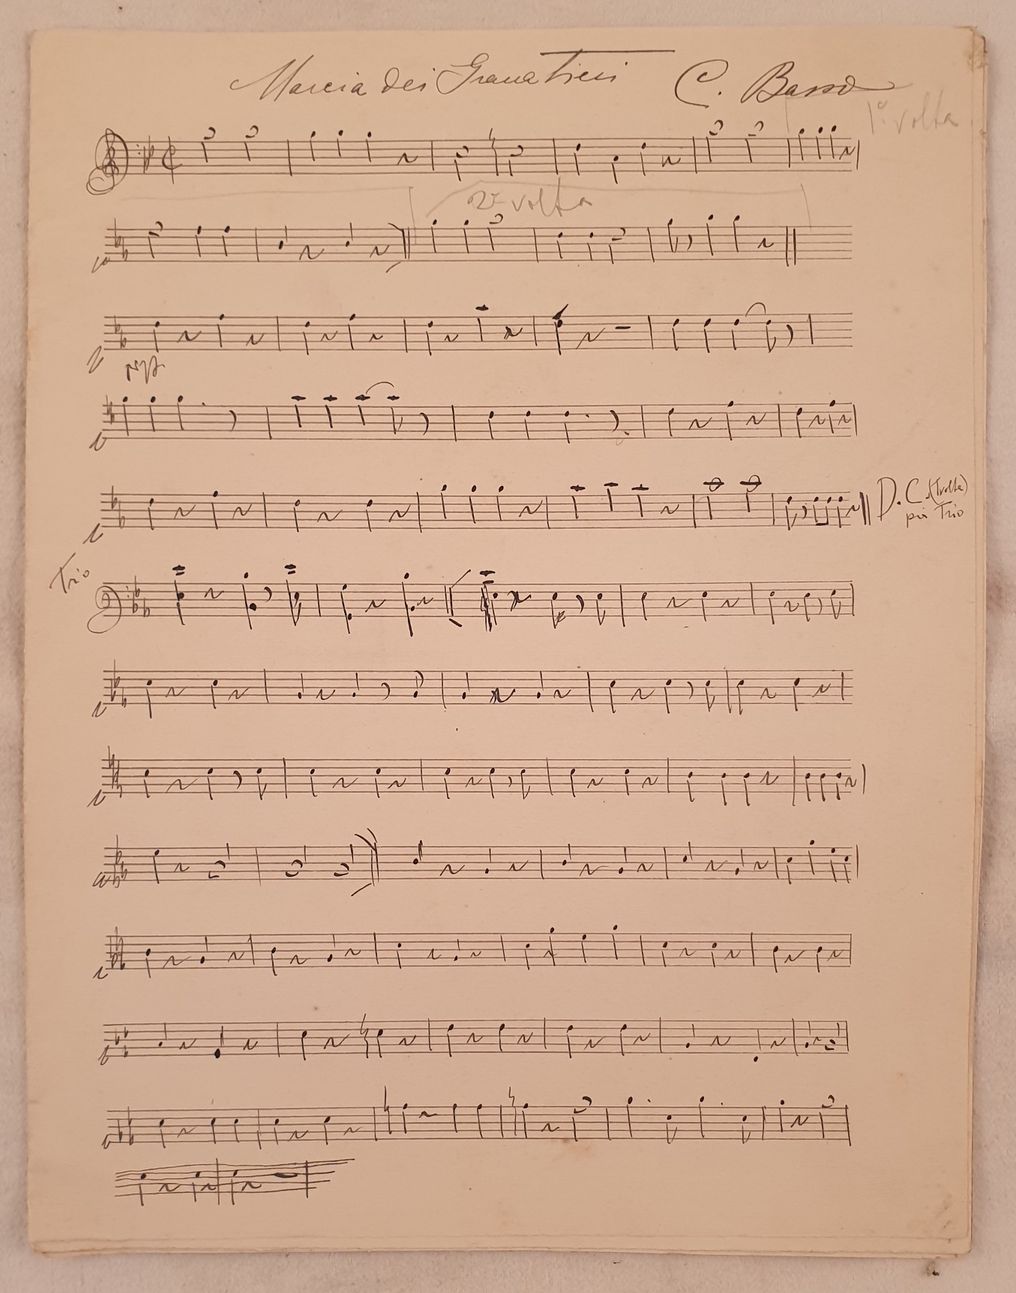 Marcia dei Granatieri C. Basso
1ª volta
2ª volta
D.C. (1 volta)
poi Trio
Trio